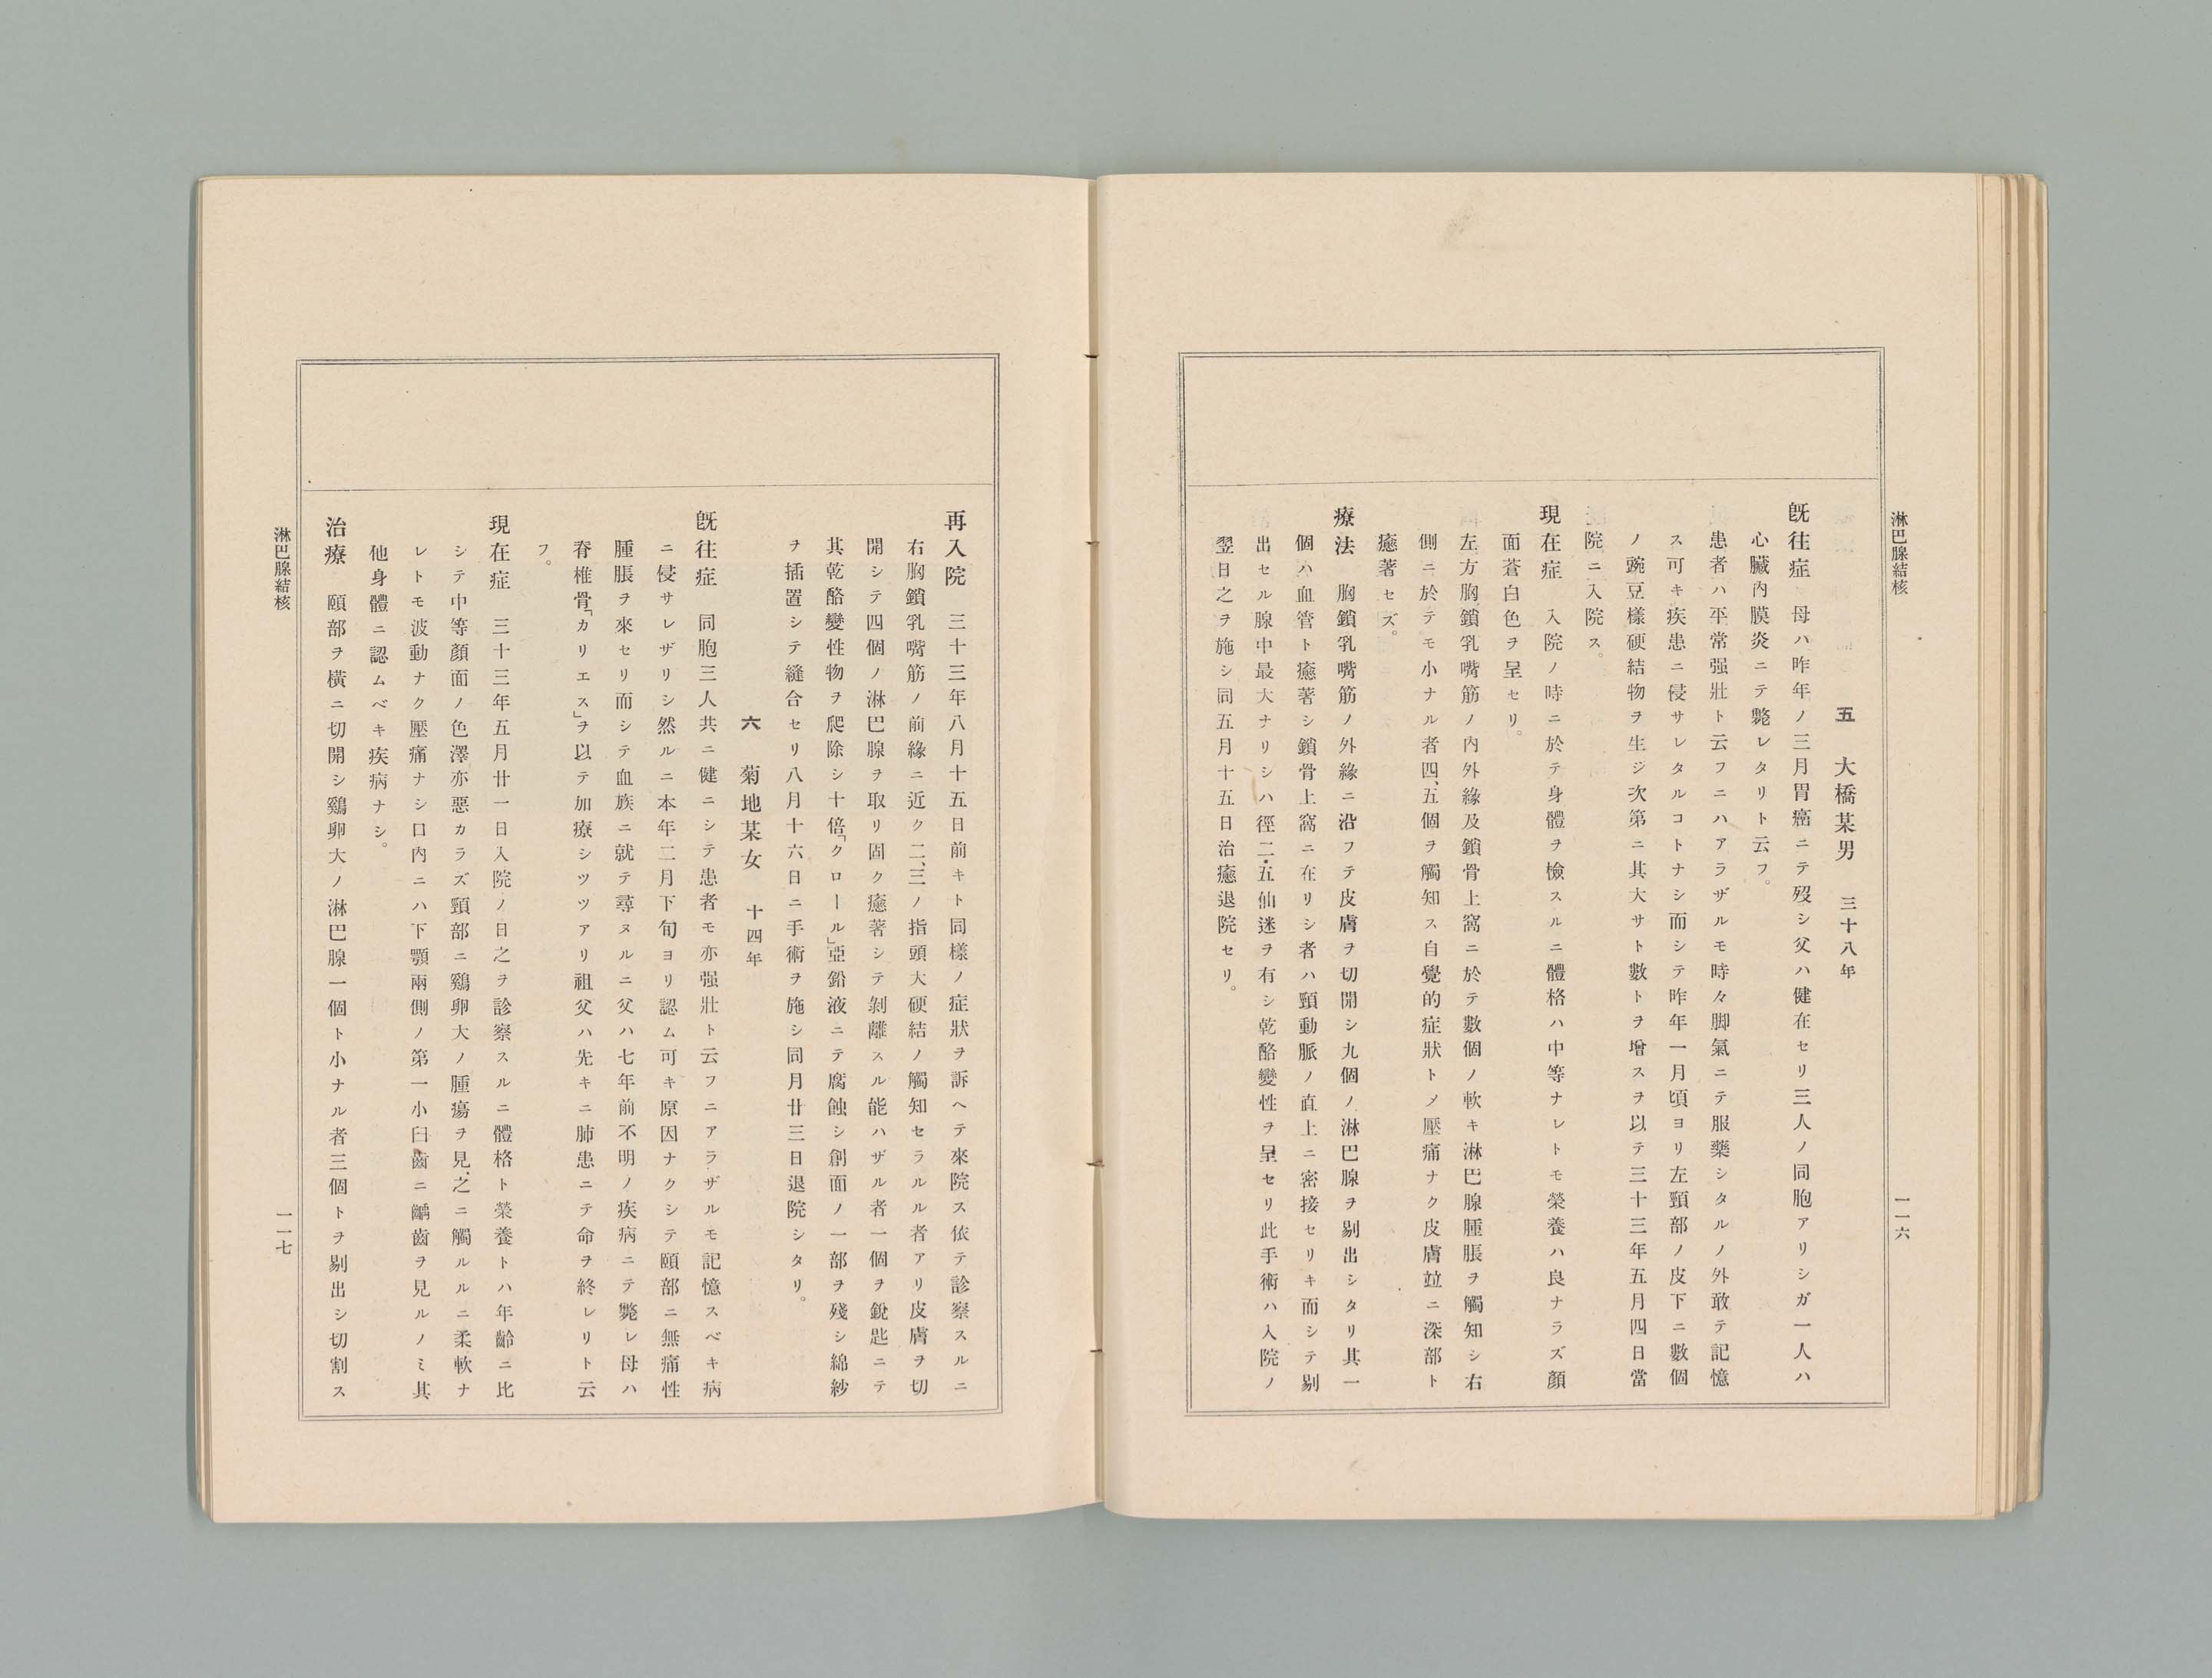 淋巴腺結核
一一六
五　大橋某男　三十八年
既往症　母ハ昨年ノ三月胃癌ニテ歿シ父ハ健在セリ三人ノ同胞アリシガ一人ハ
心臟內膜炎ニテ斃レタリト云フ。
患者ハ平常强壯ト云フニハアラザルモ時々脚氣ニテ服藥シタルノ外敢テ記憶
ス可キ疾患ニ侵サレタルコトナシ而シテ昨年一月頃ヨリ左頸部ノ皮下ニ數個
ノ豌豆樣硬結物ヲ生ジ次第ニ其大サト數トヲ增スヲ以テ三十三年五月四日當
院ニ入院ス。
現在症　入院ノ時ニ於テ身體ヲ檢スルニ體格ハ中等ナレトモ榮養ハ良ナラズ顏
面蒼白色ヲ呈セリ。
左方胸鎖乳嘴筋ノ內外緣及鎖骨上窩ニ於テ數個ノ軟キ淋巴腺腫脹ヲ觸知シ右
側ニ於テモ小ナル者四、五個ヲ觸知ス自覺的症狀トメ壓痛ナク皮膚竝ニ深部ト
癒著セズ。
療法　胸鎖乳嘴筋ノ外緣ニ沿フテ皮膚ヲ切開シ九個ノ淋巴腺ヲ剔出シタリ其一
個ハ血管ト癒著シ鎖骨上窩ニ在リシ者ハ頸動脈ノ直上ニ密接セリキ而シテ剔
出セル腺中最大ナリシハ徑二・五仙迷ヲ有シ乾酪變性ヲ呈セリ此手術ハ入院ノ
翌日之ヲ施シ同五月十五日治癒退院セリ。
再入院　三十三年八月十五日前キト同樣ノ症狀ヲ訴ヘテ來院ス依テ診察スルニ
右胸鎖乳嘴筋ノ前緣ニ近ク二、三ノ指頭大硬結ノ觸知セラルル者アリ皮膚ヲ切
開シテ四個ノ淋巴腺ヲ取リ固ク癒著シテ剝離スル能ハザル者一個ヲ銳匙ニテ
其乾酪變性物ヲ爬除シ十倍「クロール」亞鉛液ニテ腐蝕シ創面ノ一部ヲ殘シ綿紗
ヲ插置シテ縫合セリ八月十六日ニ手術ヲ施シ同月廿三日退院シタリ。
六　菊地某女　十四年
既往症　同胞三人共ニ健ニシテ患者モ亦强壯ト云フニアラザルモ記憶スベキ病
ニ侵サレザリシ然ルニ本年二月下旬ヨリ認ム可キ原因ナクシテ頤部ニ無痛性
腫脹ヲ來セリ而シテ血族ニ就テ尋ヌルニ父ハ七年前不明ノ疾病ニテ斃レ母ハ
脊椎骨「カリエス」ヲ以テ加療シツツアリ祖父ハ先キニ肺患ニテ命ヲ終レリト云
フ。
現在症　三十三年五月廿一日入院ノ日之ヲ診察スルニ體格ト榮養トハ年齡ニ比
シテ中等顏面ノ色澤亦惡カラズ頸部ニ鷄卵大ノ腫瘍ヲ見、之ニ觸ルルニ柔軟ナ
レトモ波動ナク壓痛ナシ口內ニハ下顎兩側ノ第一小臼齒ニ齲齒ヲ見ルノミ其
他身體ニ認ムベキ疾病ナシ。
治療　頤部ヲ橫ニ切開シ鷄卵大ノ淋巴腺一個ト小ナル者三個トヲ剔出シ切割ス
淋巴腺結核
一一七